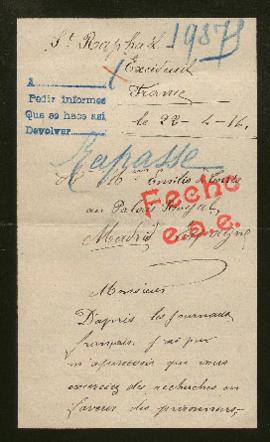 St Raphaël 1987
Excideuil
A
France
Pedir informes
Que se hace así
le 22-4-16.
Devolver
Rapasse
Fecho
e.p.e.
Mr
au Palais Royal
Madrid Espagne
Monsieur
D'après les journaux
français, j'ai pu
m'apercevoir que vous
exerciez des recherches en
faveur des prisonniers,